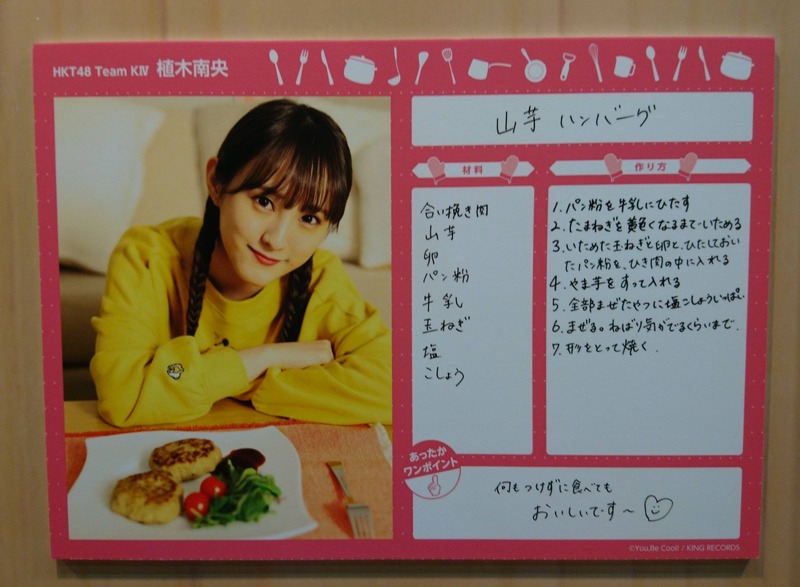 HKT48 Team KⅣ 植木南央
山芋 ハンバーグ
材料
合い挽き肉
山芋
卵
パン粉
牛乳
玉ねぎ
塩
こしょう
作り方
1. パン粉を牛乳にひたす
2. たまねぎを黄色くなるまでいためる
3. いためた玉ねぎと卵と、ひたしておい
たパン粉を、ひき肉の中に入れる
4. やま芋をすって入れる
5. 全部まぜたやつに塩こしょういっぱい
6. まぜる。ねばり気がでるくらいまで.
7. 形をとって焼く.
あったか
ワンポイント
何もつけずに食べても
おいしいです〜
©You, Be Cool! / KING RECORDS